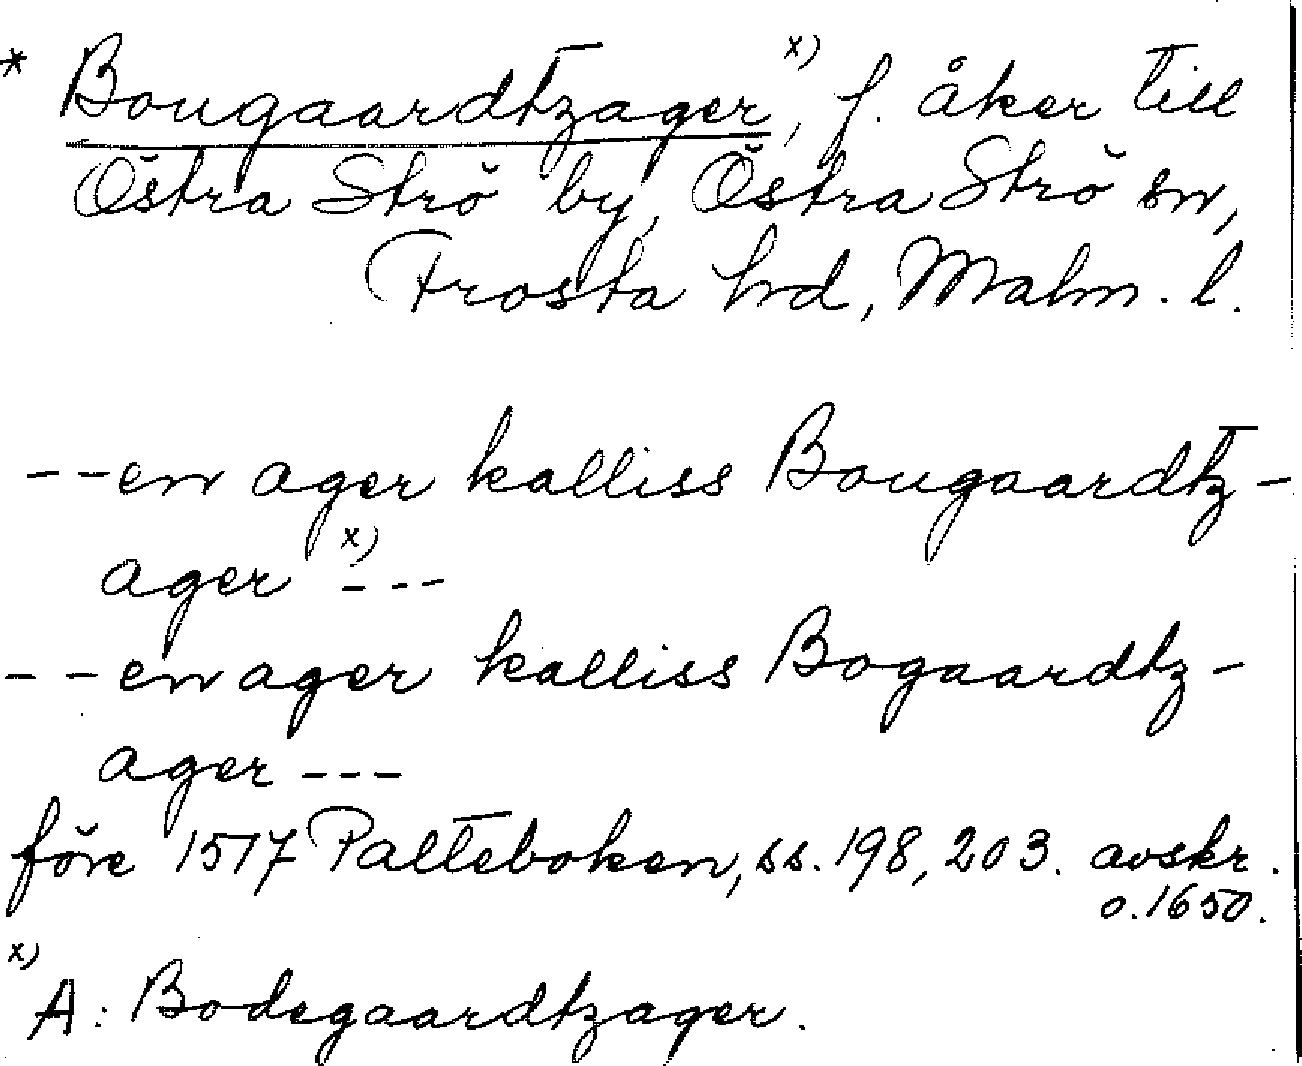 * Bougaardtzager, x) f. åker till
Östra Strö by, Östra Strö sn,
Frosta hd, Malm. l.
--en ager kalliss Bougaardtz-
ager x) ---
--en ager kalliss Bogaardtz-
ager ---
före 1517 Palteboken, ss. 198, 203. avskr.
o. 1650.
x)
A: Bodegaardtzager.